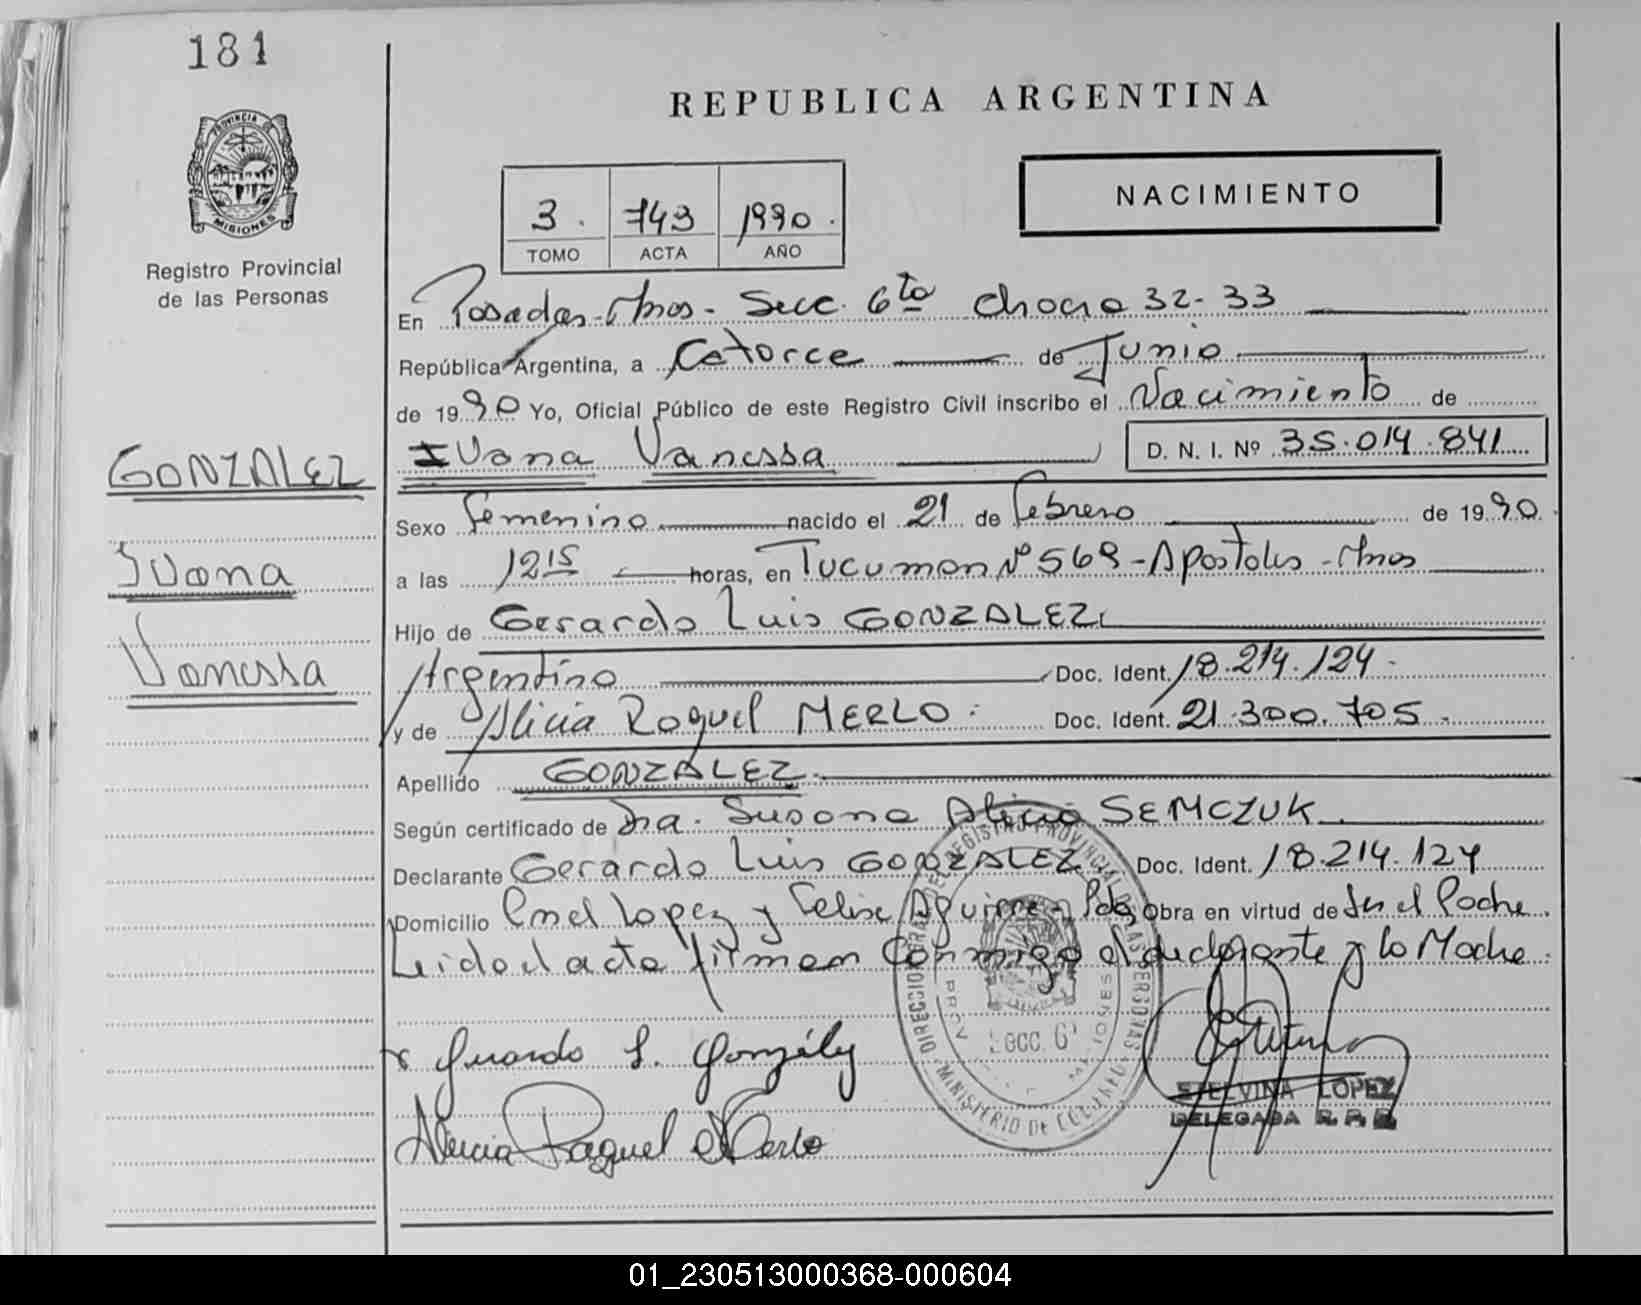 181
REPUBLICA ARGENTINA
PROVINCIA DE
MISIONES
Registro Provincial
de las Personas
3. 743 1990.
TOMO ACTA AÑO
NACIMIENTO
En Posadas-Mnes- Secc. 6ta Chacra 32-33
República Argentina, a Catorce de Junio
de 1990 Yo, Oficial Público de este Registro Civil inscribo el Nacimiento de
GONZALEZ
Ivana Vanessa D. N. I. Nº 35.014.841
Sexo Femenino nacido el 21 de Febrero de 1990
Ivana
a las 12 15 horas, en Tucuman Nº 569-Apostoles-Mnes
Hijo de Gerardo Luis GONZALEZ
Vanessa
Argentino Doc. Ident. 18.214.124.
y de Alicia Raquel MERLO Doc. Ident. 21.300.705.
Apellido GONZALEZ.
Según certificado de Dra. Susana Alicia SEMCZUK
Declarante Gerardo Luis GONZALEZ Doc. Ident. 18.214.124
Domicilio Lopez y Felix Aguirre Pdas Obra en virtud de Ser el Padre.
Leido el acta firman conmigo el declarante y la Madre
SECC. 6
Gerardo L. González
Alicia Raquel Merlo
ETELVINA LOPEZ
DELEGADA R. P. P.
01_230513000368-000604